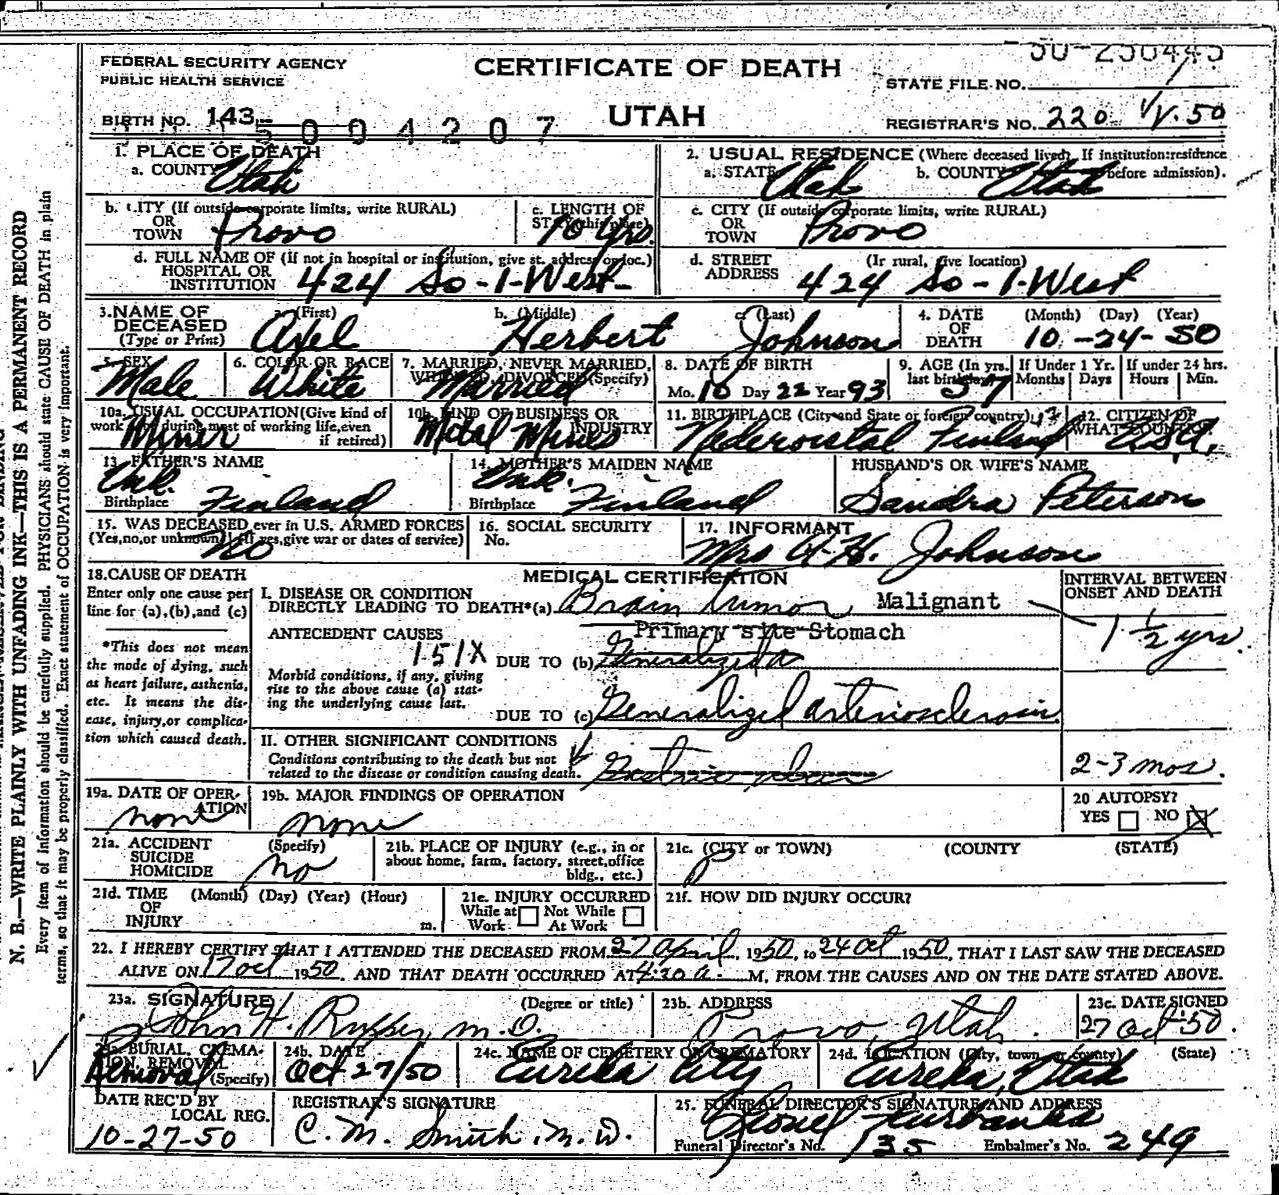 50-250445
FEDERAL SECURITY AGENCY
PUBLIC HEALTH SERVICE
CERTIFICATE OF DEATH
STATE FILE NO.
BIRTH NO. 143
5094207
UTAH
REGISTRAR'S NO. 220
1. PLACE OF DEATH
a. COUNTY Utah
2. USUAL RESIDENCE (Where deceased lived. If institution: residence before admission).
a. STATE Utah b. COUNTY Utah
b. CITY (If outside corporate limits, write RURAL) OR TOWN Provo
c. LENGTH OF STAY (in this place) 10 yrs.
c. CITY (If outside corporate limits, write RURAL) OR TOWN Provo
d. FULL NAME OF (If not in hospital or institution, give st. address or loc.) HOSPITAL OR INSTITUTION 424 So-1-West
d. STREET ADDRESS (If rural, give location) 424 So-1-West
3. NAME OF DECEASED (Type or Print) a. (First) Axel b. (Middle) Herbert c. (Last) Johnson
4. DATE OF DEATH (Month) (Day) (Year) 10-24-50
5. SEX Male
6. COLOR OR RACE White
7. MARRIED, NEVER MARRIED, WIDOWED, DIVORCED (Specify) Married
8. DATE OF BIRTH Mo. 10 Day 22 Year 93
9. AGE (In yrs. last birthday) 57
If Under 1 Yr. Months Days
If under 24 hrs. Hours Min.
10a. USUAL OCCUPATION (Give kind of work done during most of working life, even if retired) Miner
10b. KIND OF BUSINESS OR INDUSTRY Metal Mines
11. BIRTHPLACE (City and State or foreign country) Finland
12. CITIZEN OF WHAT COUNTRY U.S.A.
13. FATHER'S NAME Unk. Birthplace Finland
14. MOTHER'S MAIDEN NAME Unk. Birthplace Finland
HUSBAND'S OR WIFE'S NAME Sandra Peterson
15. WAS DECEASED ever in U.S. ARMED FORCES (Yes, no, or unknown) (If yes, give war or dates of service) No
16. SOCIAL SECURITY No.
17. INFORMANT Mrs A. H. Johnson
18. CAUSE OF DEATH
Enter only one cause per line for (a), (b), and (c)
*This does not mean the mode of dying, such as heart failure, asthenia, etc. It means the disease, injury, or complication which caused death.
MEDICAL CERTIFICATION
INTERVAL BETWEEN ONSET AND DEATH
I. DISEASE OR CONDITION DIRECTLY LEADING TO DEATH*(a) Brain tumor Malignant
Primary site Stomach
1 1/2 yrs.
ANTECEDENT CAUSES
151X
DUE TO (b) Generalized a
Morbid conditions, if any, giving rise to the above cause (a) stating the underlying cause last.
DUE TO (c) Generalized arteriosclerosis
II. OTHER SIGNIFICANT CONDITIONS
Conditions contributing to the death but not related to the disease or condition causing death.
2-3 mos.
19a. DATE OF OPERATION none
19b. MAJOR FINDINGS OF OPERATION none
20 AUTOPSY? YES NO X
21a. ACCIDENT SUICIDE HOMICIDE (Specify) no
21b. PLACE OF INJURY (e.g., in or about home, farm, factory, street, office bldg., etc.)
21c. (CITY or TOWN) (COUNTY) (STATE)
21d. TIME OF INJURY (Month) (Day) (Year) (Hour) m.
21e. INJURY OCCURRED While at Work Not While At Work
21f. HOW DID INJURY OCCUR?
22. I HEREBY CERTIFY THAT I ATTENDED THE DECEASED FROM 27 April, 1950, to 24 Oct 1950, THAT I LAST SAW THE DECEASED
ALIVE ON 17 Oct 1950, AND THAT DEATH OCCURRED AT 4:20 a. M, FROM THE CAUSES AND ON THE DATE STATED ABOVE.
23a. SIGNATURE (Degree or title) John H. M.D.
23b. ADDRESS Provo, Utah.
23c. DATE SIGNED 27 Oct 50.
24a. BURIAL, CREMATION, REMOVAL (Specify) Removal
24b. DATE Oct 27/50
24c. NAME OF CEMETERY OR CREMATORY Eureka City
24d. LOCATION (City, town, or county) (State) Eureka, Utah
DATE REC'D BY LOCAL REG. 10-27-50
REGISTRAR'S SIGNATURE C. M. Smith, M.D.
25. FUNERAL DIRECTOR'S SIGNATURE AND ADDRESS
Funeral Director's No. 135 Embalmer's No. 249
N. B.—WRITE PLAINLY WITH UNFADING INK—THIS IS A PERMANENT RECORD
Every item of information should be carefully supplied. PHYSICIANS should state CAUSE OF DEATH in plain
terms, so that it may be properly classified. Exact statement of OCCUPATION is very important.